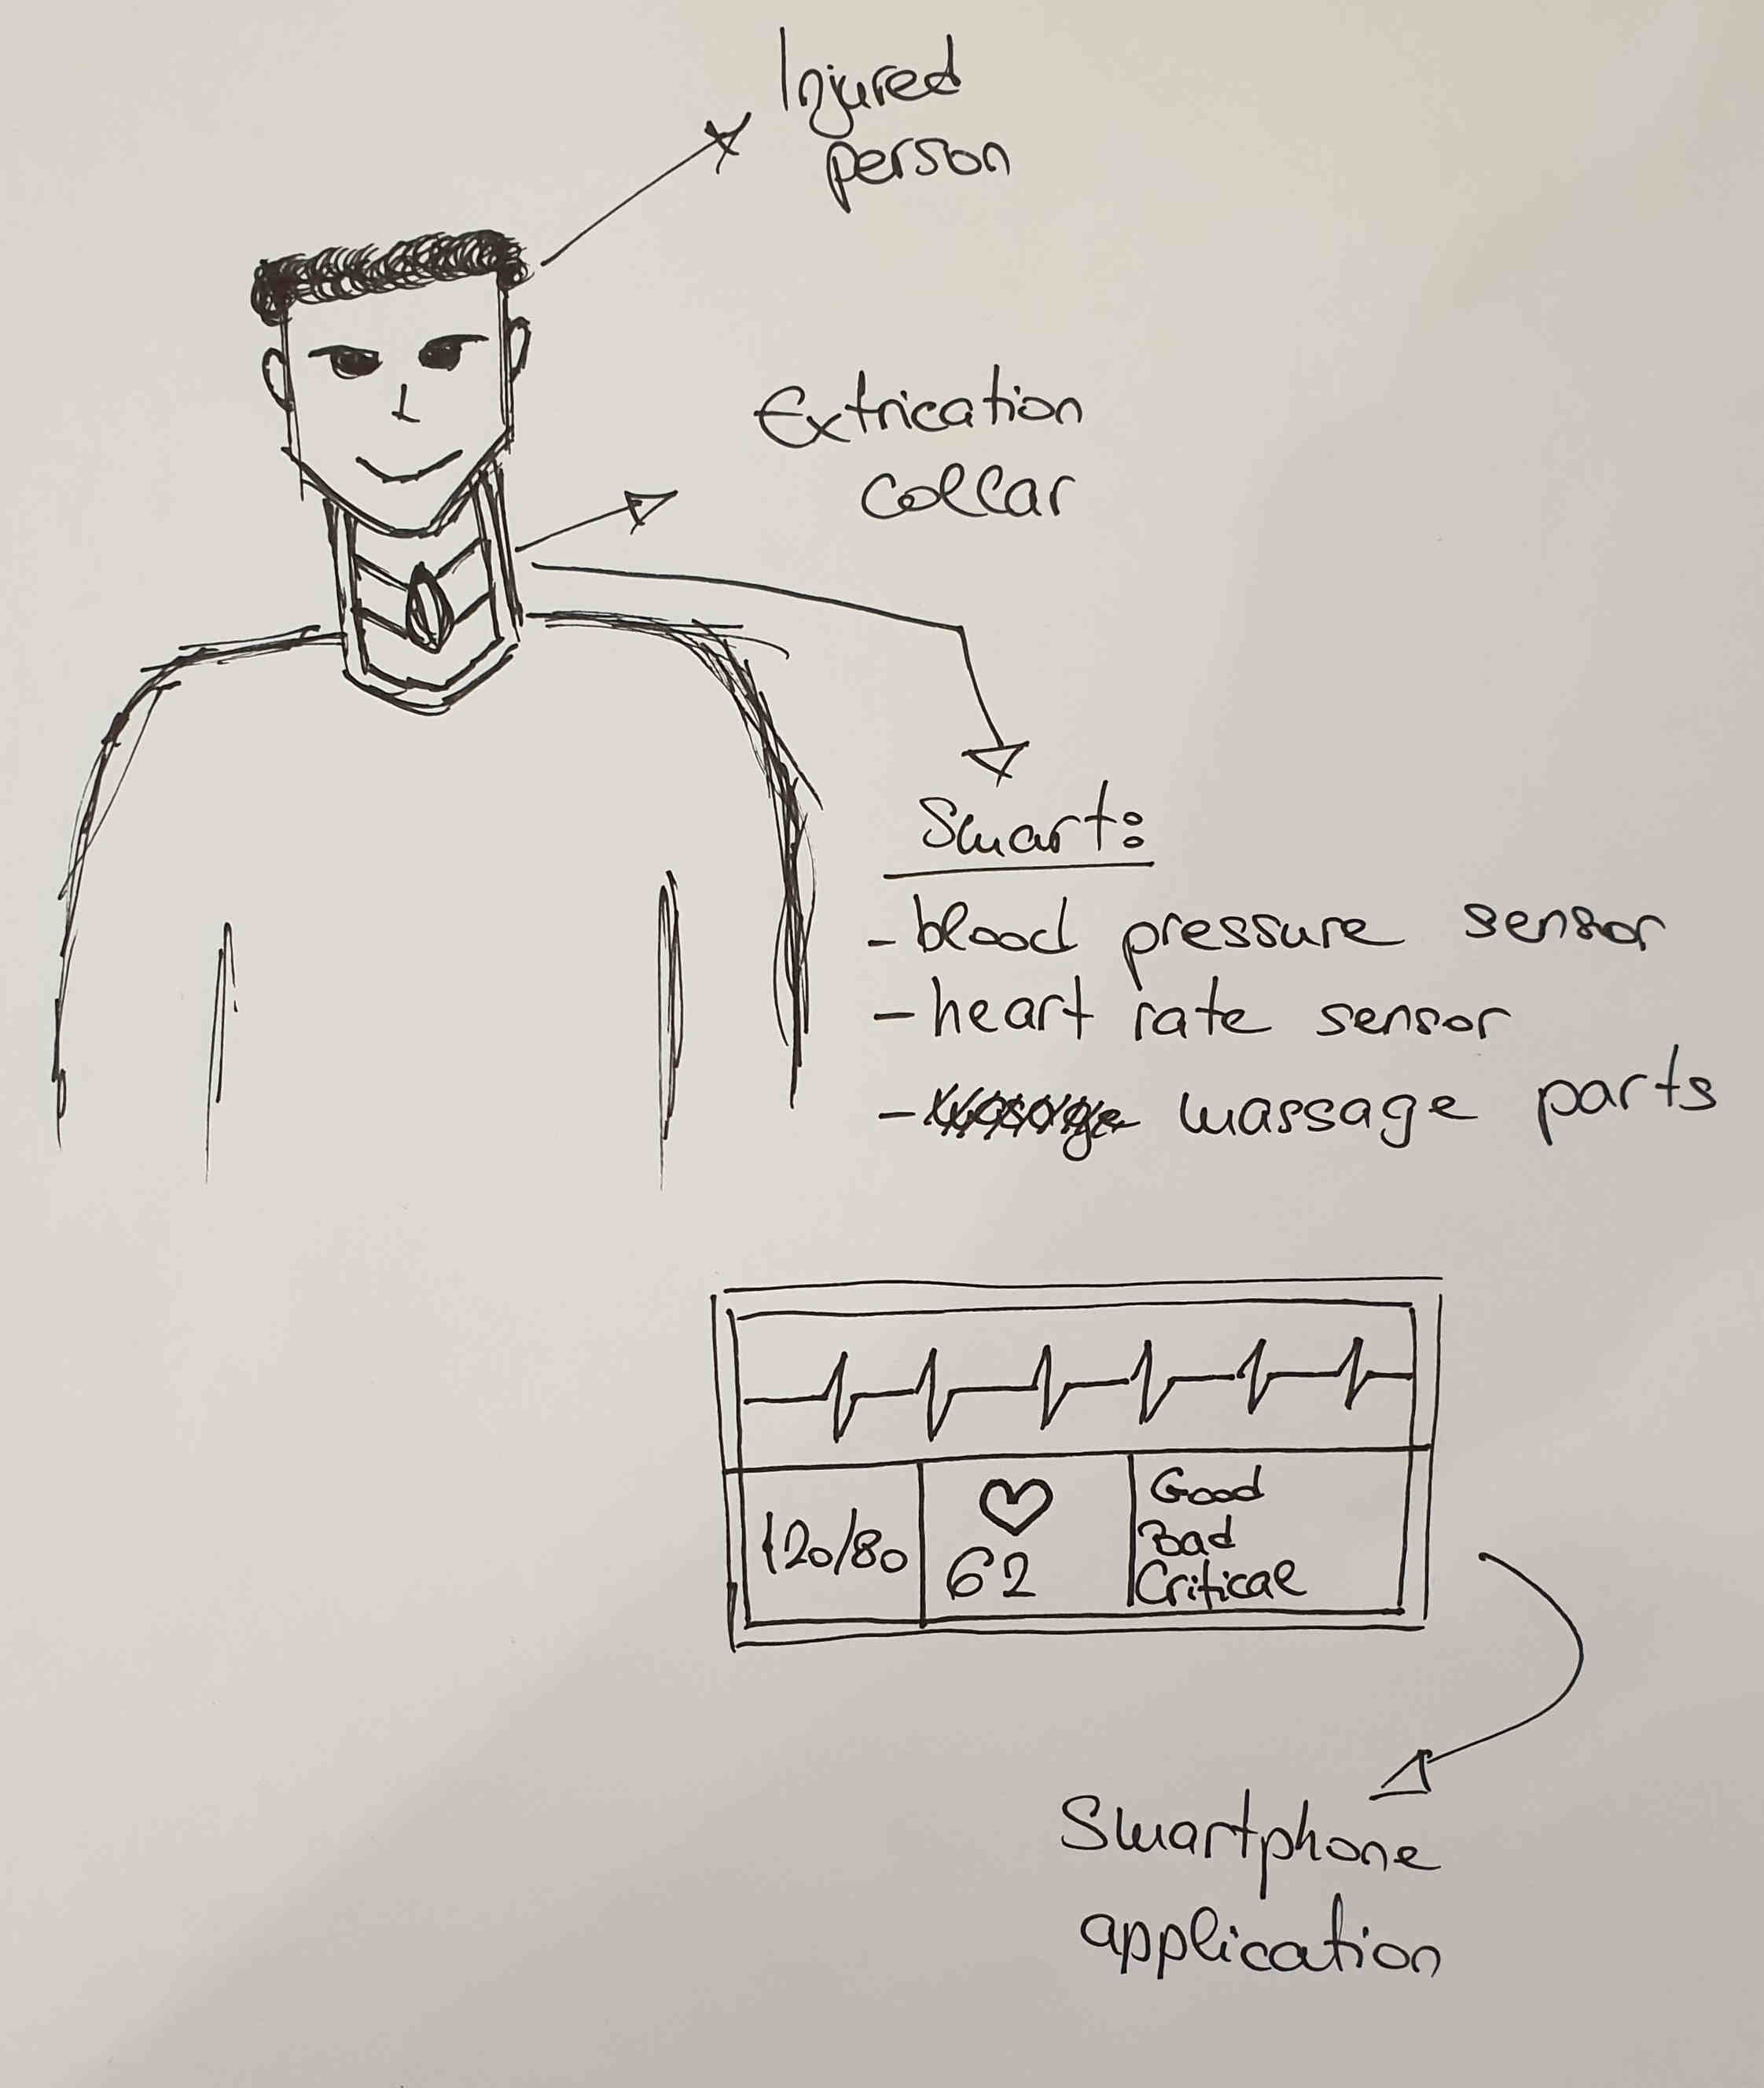 Injured
person
Extrication
collar
Smart:
- blood pressure sensor
- heart rate sensor
- massage parts
120/80
62
Good
Bad
Critical
Smartphone
application